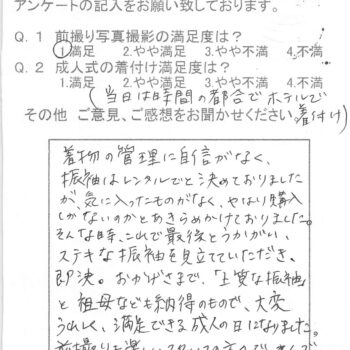 アンケートの記入をお願い致しております。
Q．1 前撮り写真撮影の満足度は？
1.満足 2.やや満足 3.やや不満 4.不満
Q．2 成人式の着付け満足度は？
1.満足 2.やや満足 3.やや不満 4.不満
(当日は時間の都合でホテルで
その他 ご意見、ご感想をお聞かせください。着付け)
着物の管理に自信がなく、
振袖はレンタルでと決めておりました
が、気に入ったものがなく、やはり購入
しかないのかとあきらめかけておりました。
そんな時、ここで最後とうかがい、
ステキな振袖を見立てていただき、
即決。おかげさまで、「上質な振袖」
と祖母なども納得のもので、大変
うれしく、満足できる成人の日になりました。
前撮りも楽しく